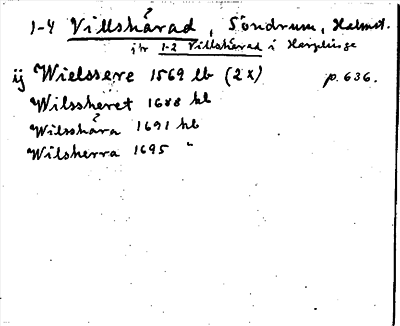 1-4 Villshärad, Söndrum, Halmst.
jfr 1-2 Villshärad i Harplinge
ij Wielssere 1569 lb (2x) p. 636.
Wilssheret 1688 hl
Wilsshåra 1691 hl
Wilsherra 1695 "